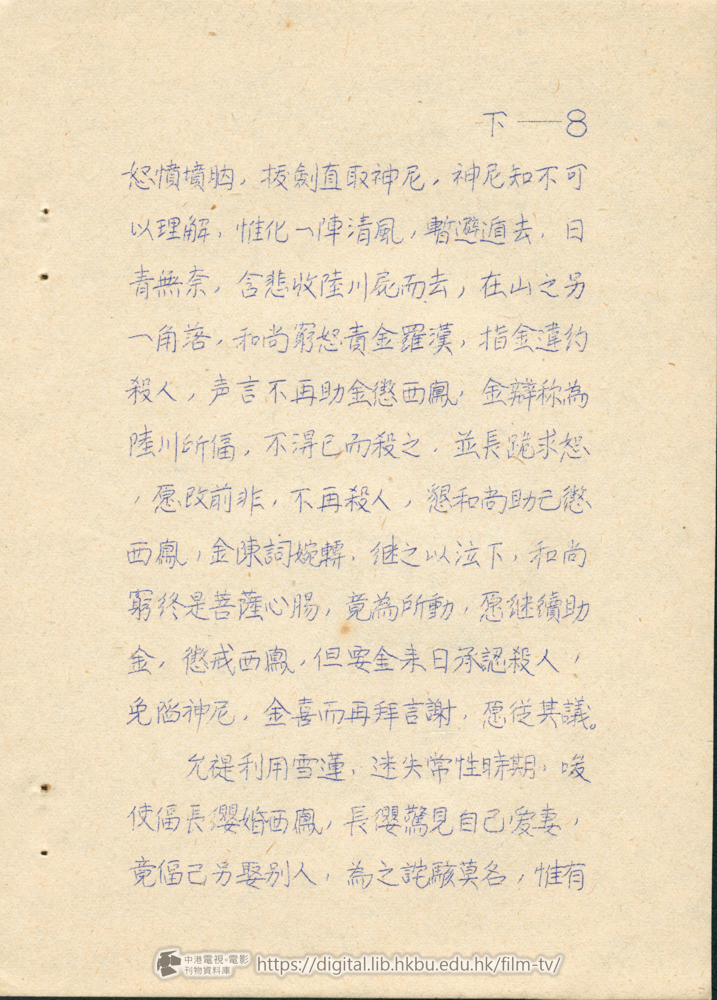 下——8
怒憤墳胸，拔劍直取神尼，神尼知不可
以理解，惟化一陣清風，暫避遁去，日
青無奈，含悲收陸川屍而去，在山之另
一角落，和尚窮怒責金羅漢，指金違約
殺人，声言不再助金懲西鳳，金辯称為
陸川所偪，不得已而殺之，並長跪求恕
，愿改前非，不再殺人，懇和尚助己懲
西鳳，金陳詞婉轉，继之以泣下，和尚
窮终是菩薩心腸，竟為所動，愿继續助
金，懲戒西鳳，但要金来日承認殺人，
免陷神尼，金喜而再拜言謝，愿從其議。
允禔利用雪蓮，迷失常性時期，唆
使偪長纓婚西鳳，長纓驚見自己爱妻，
竟偪己另娶别人，為之詫駭莫名，惟有
中港電視·電影
刊物資料庫
https://digital.lib.hkbu.edu.hk/film-tv/